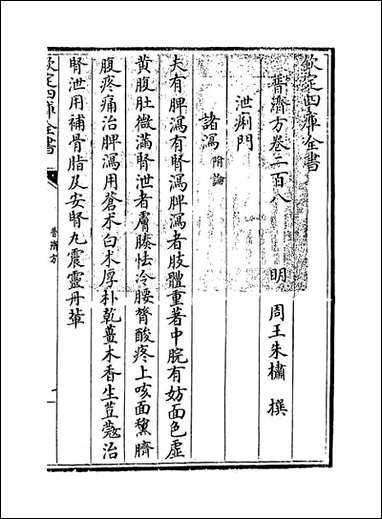 欽定四庫全書
普濟方卷二百八
明 周王朱橚 撰
泄痢門
諸瀉 附論
夫有脾瀉有腎瀉脾瀉者肢體重著中脘有妨面色虛
黄腹肚微滿腎泄者膚腠怯冷腰膂酸疼上咳面黧臍
腹疼痛治脾瀉用蒼术白术厚朴乾薑木香生荳蔻治
腎泄用補骨脂及安腎丸震靈丹輩
欽定四庫全書
普濟方
一